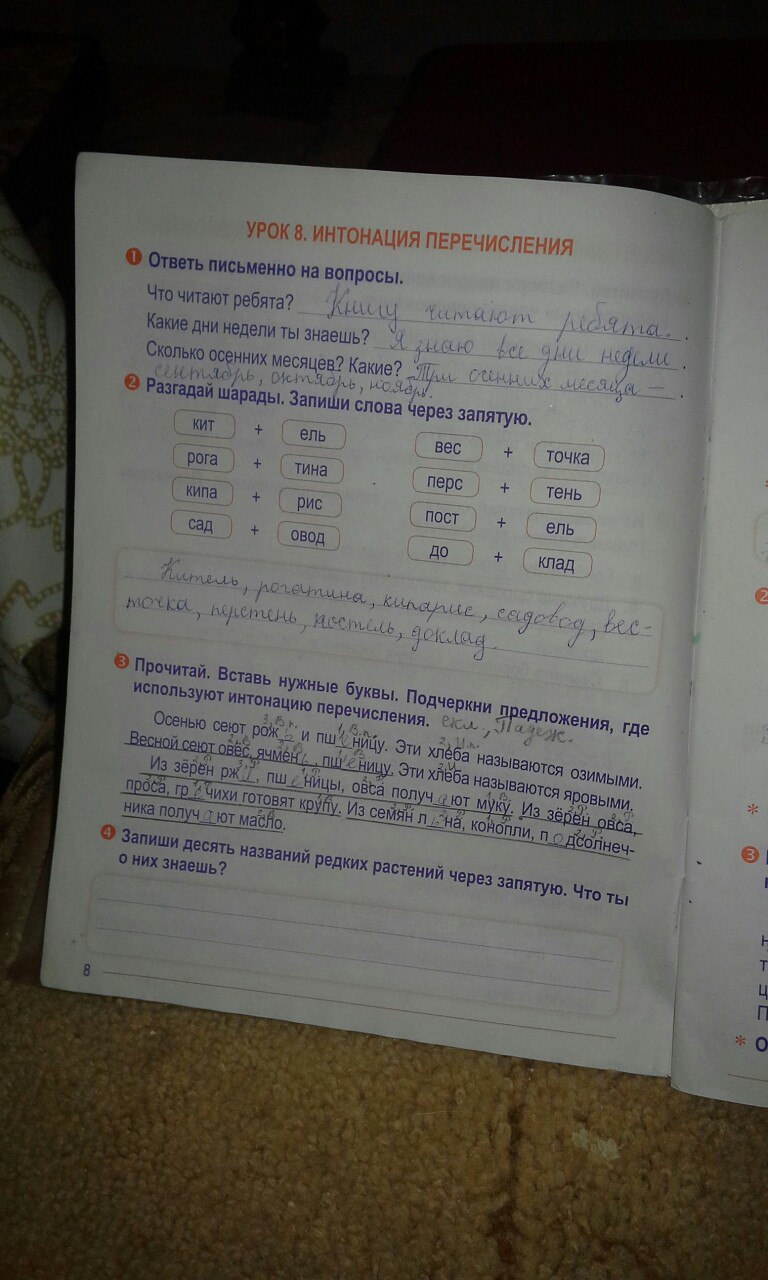 УРОК 8. ИНТОНАЦИЯ ПЕРЕЧИСЛЕНИЯ
1 Ответь письменно на вопросы.
Что читают ребята? Книгу читают ребята.
Какие дни недели ты знаешь? Я знаю все дни недели.
Сколько осенних месяцев? Какие? Три осенних месяца –
сентябрь, октябрь, ноябрь.
2 Разгадай шарады. Запиши слова через запятую.
кит + ель вес + точка
рога + тина перс + тень
кипа + рис пост + ель
сад + овод до + клад
Китель, рогатина, кипарис, садовод, вес-
точка, перстень, постель, доклад.
3 Прочитай. Вставь нужные буквы. Подчеркни предложения, где
используют интонацию перечисления. скл, Падеж.
Осенью сеют рожь и пшеницу. Эти хлеба называются озимыми.
Весной сеют овёс, ячмень, пшеницу. Эти хлеба называются яровыми.
Из зёрен ржи, пшеницы, овса получают муку. Из зёрен овса,
проса, гречихи готовят крупу. Из семян льна, конопли, подсолнеч-
ника получают масло.
4 Запиши десять названий редких растений через запятую. Что ты
о них знаешь?
8